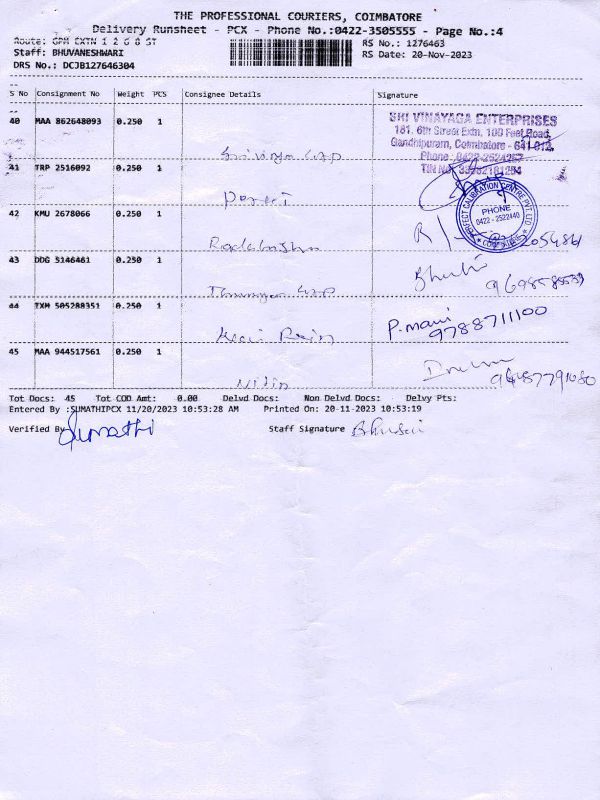 THE PROFESSIONAL COURIERS, COIMBATORE
Delivery Runsheet - PCX - Phone No.:0422-3505555 - Page No.:4
Route: GPM EXTN 1 2 6 8 ST
RS No.: 1276463
Staff: BHUVANESHWARI
RS Date: 20-Nov-2023
DRS No.: DCJB127646304
S No Consignment No Weight PCS Consignee Details Signature
40 MAA 862648093 0.250 1
SRI VINAYAGA ENTERPRISES
181, 6th Street Extn, 100 Feet Road,
Gandhipuram, Coimbatore - 641 012.
Phone : 0422-2524257
TIN No.
41 TRP 2516092 0.250 1
PERFECT CALIBRATION CENTRE PVT. LTD
PHONE
0422 - 2522440
42 KMU 2678066 0.250 1
Radhakrishna
43 DDG 5146461 0.250 1
Bhuvi
44 TXM 505288351 0.250 1
P. mani
9788711100
45 MAA 944517561 0.250 1
Nitin
Tot Docs: 45 Tot COD Amt: 0.00 Delvd Docs: Non Delvd Docs: Delvy Pts:
Entered By :SUMATHIPCX 11/20/2023 10:53:28 AM Printed On: 20-11-2023 10:53:19
Verified By Sumathi Staff Signature